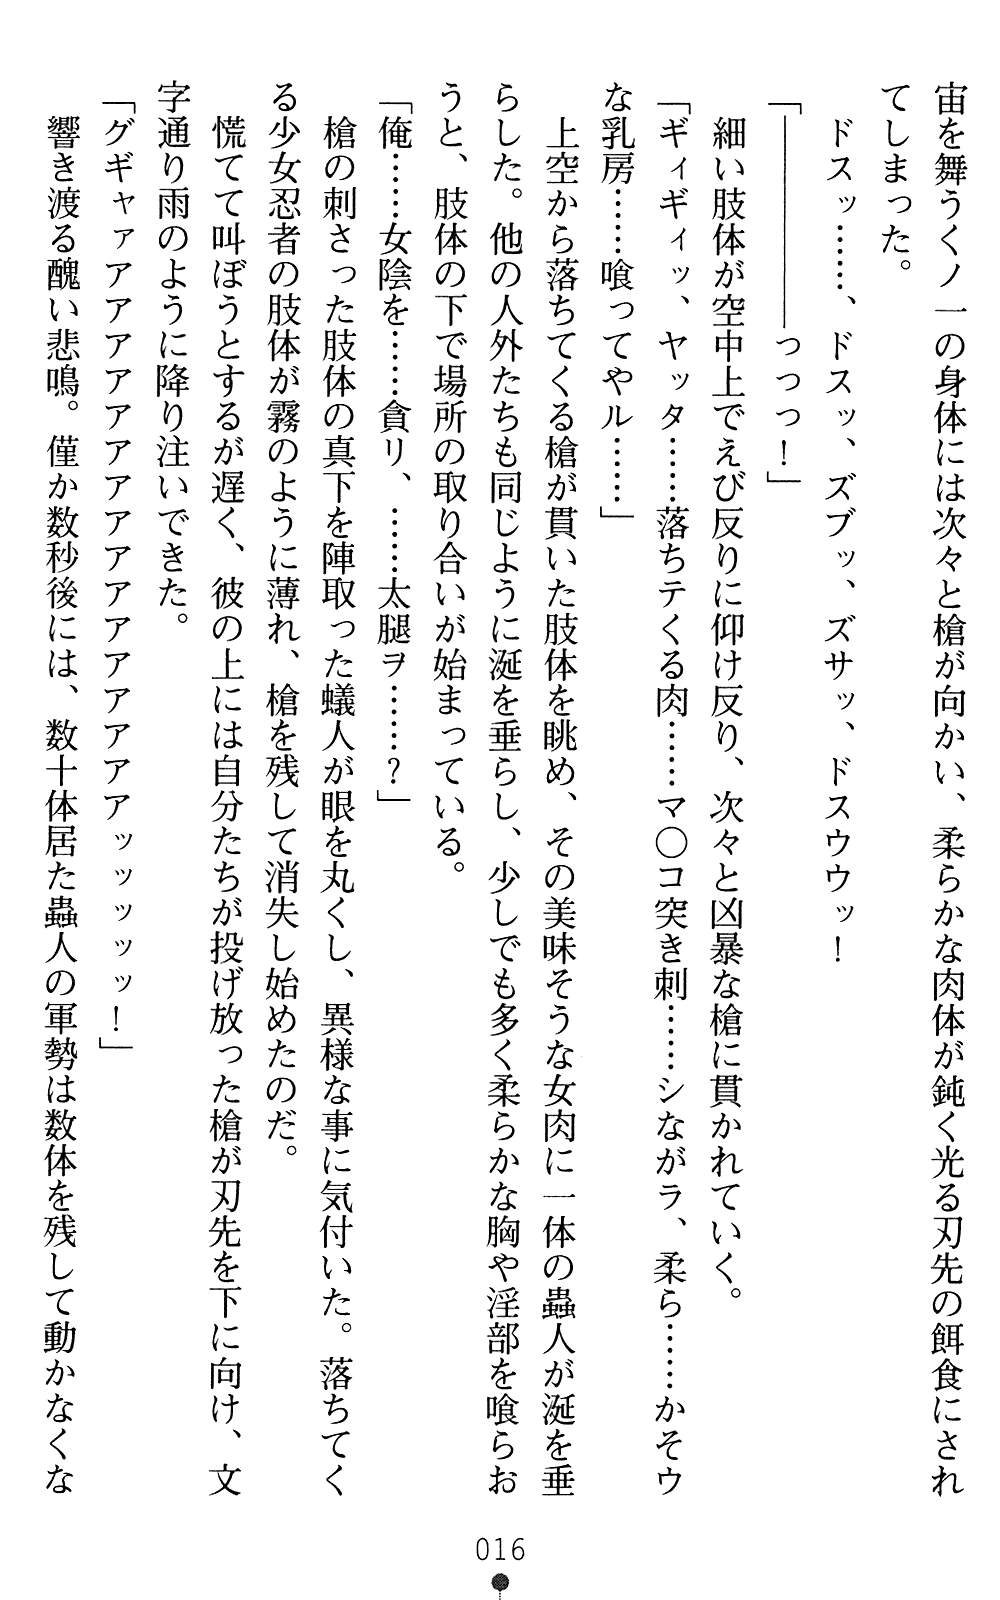 宙を舞うくノ一の身体には次々と槍が向かい、柔らかな肉体が鈍く光る刃先の餌食にされ
てしまった。
ドスッ……、ドスッ、ズブッ、ズサッ、ドスウウッ！
「――――――っっっ！」
細い肢体が空中上でえび反りに仰け反り、次々と凶暴な槍に貫かれていく。
「ギィギィッ、ヤッタ……落ちテくる肉……マ〇コ突き刺……シながラ、柔ら……かそウ
な乳房……喰ってやル……」
上空から落ちてくる槍が貫いた肢体を眺め、その美味そうな女肉に一体の蟲人が涎を垂
らした。他の人外たちも同じように涎を垂らし、少しでも多く柔らかな胸や淫部を喰らお
うと、肢体の下で場所の取り合いが始まっている。
「俺……女陰を……貪リ、……太腿ヲ……？」
槍の刺さった肢体の真下を陣取った蟻人が眼を丸くし、異様な事に気付いた。落ちてく
る少女忍者の肢体が霧のように薄れ、槍を残して消失し始めたのだ。
慌てて叫ぼうとするが遅く、彼の上には自分たちが投げ放った槍が刃先を下に向け、文
字通り雨のように降り注いできた。
「グギャァアアアアアアアアアアアアアアアアッッッッッ！」
響き渡る醜い悲鳴。僅か数秒後には、数十体居た蟲人の軍勢は数体を残して動かなくな
016